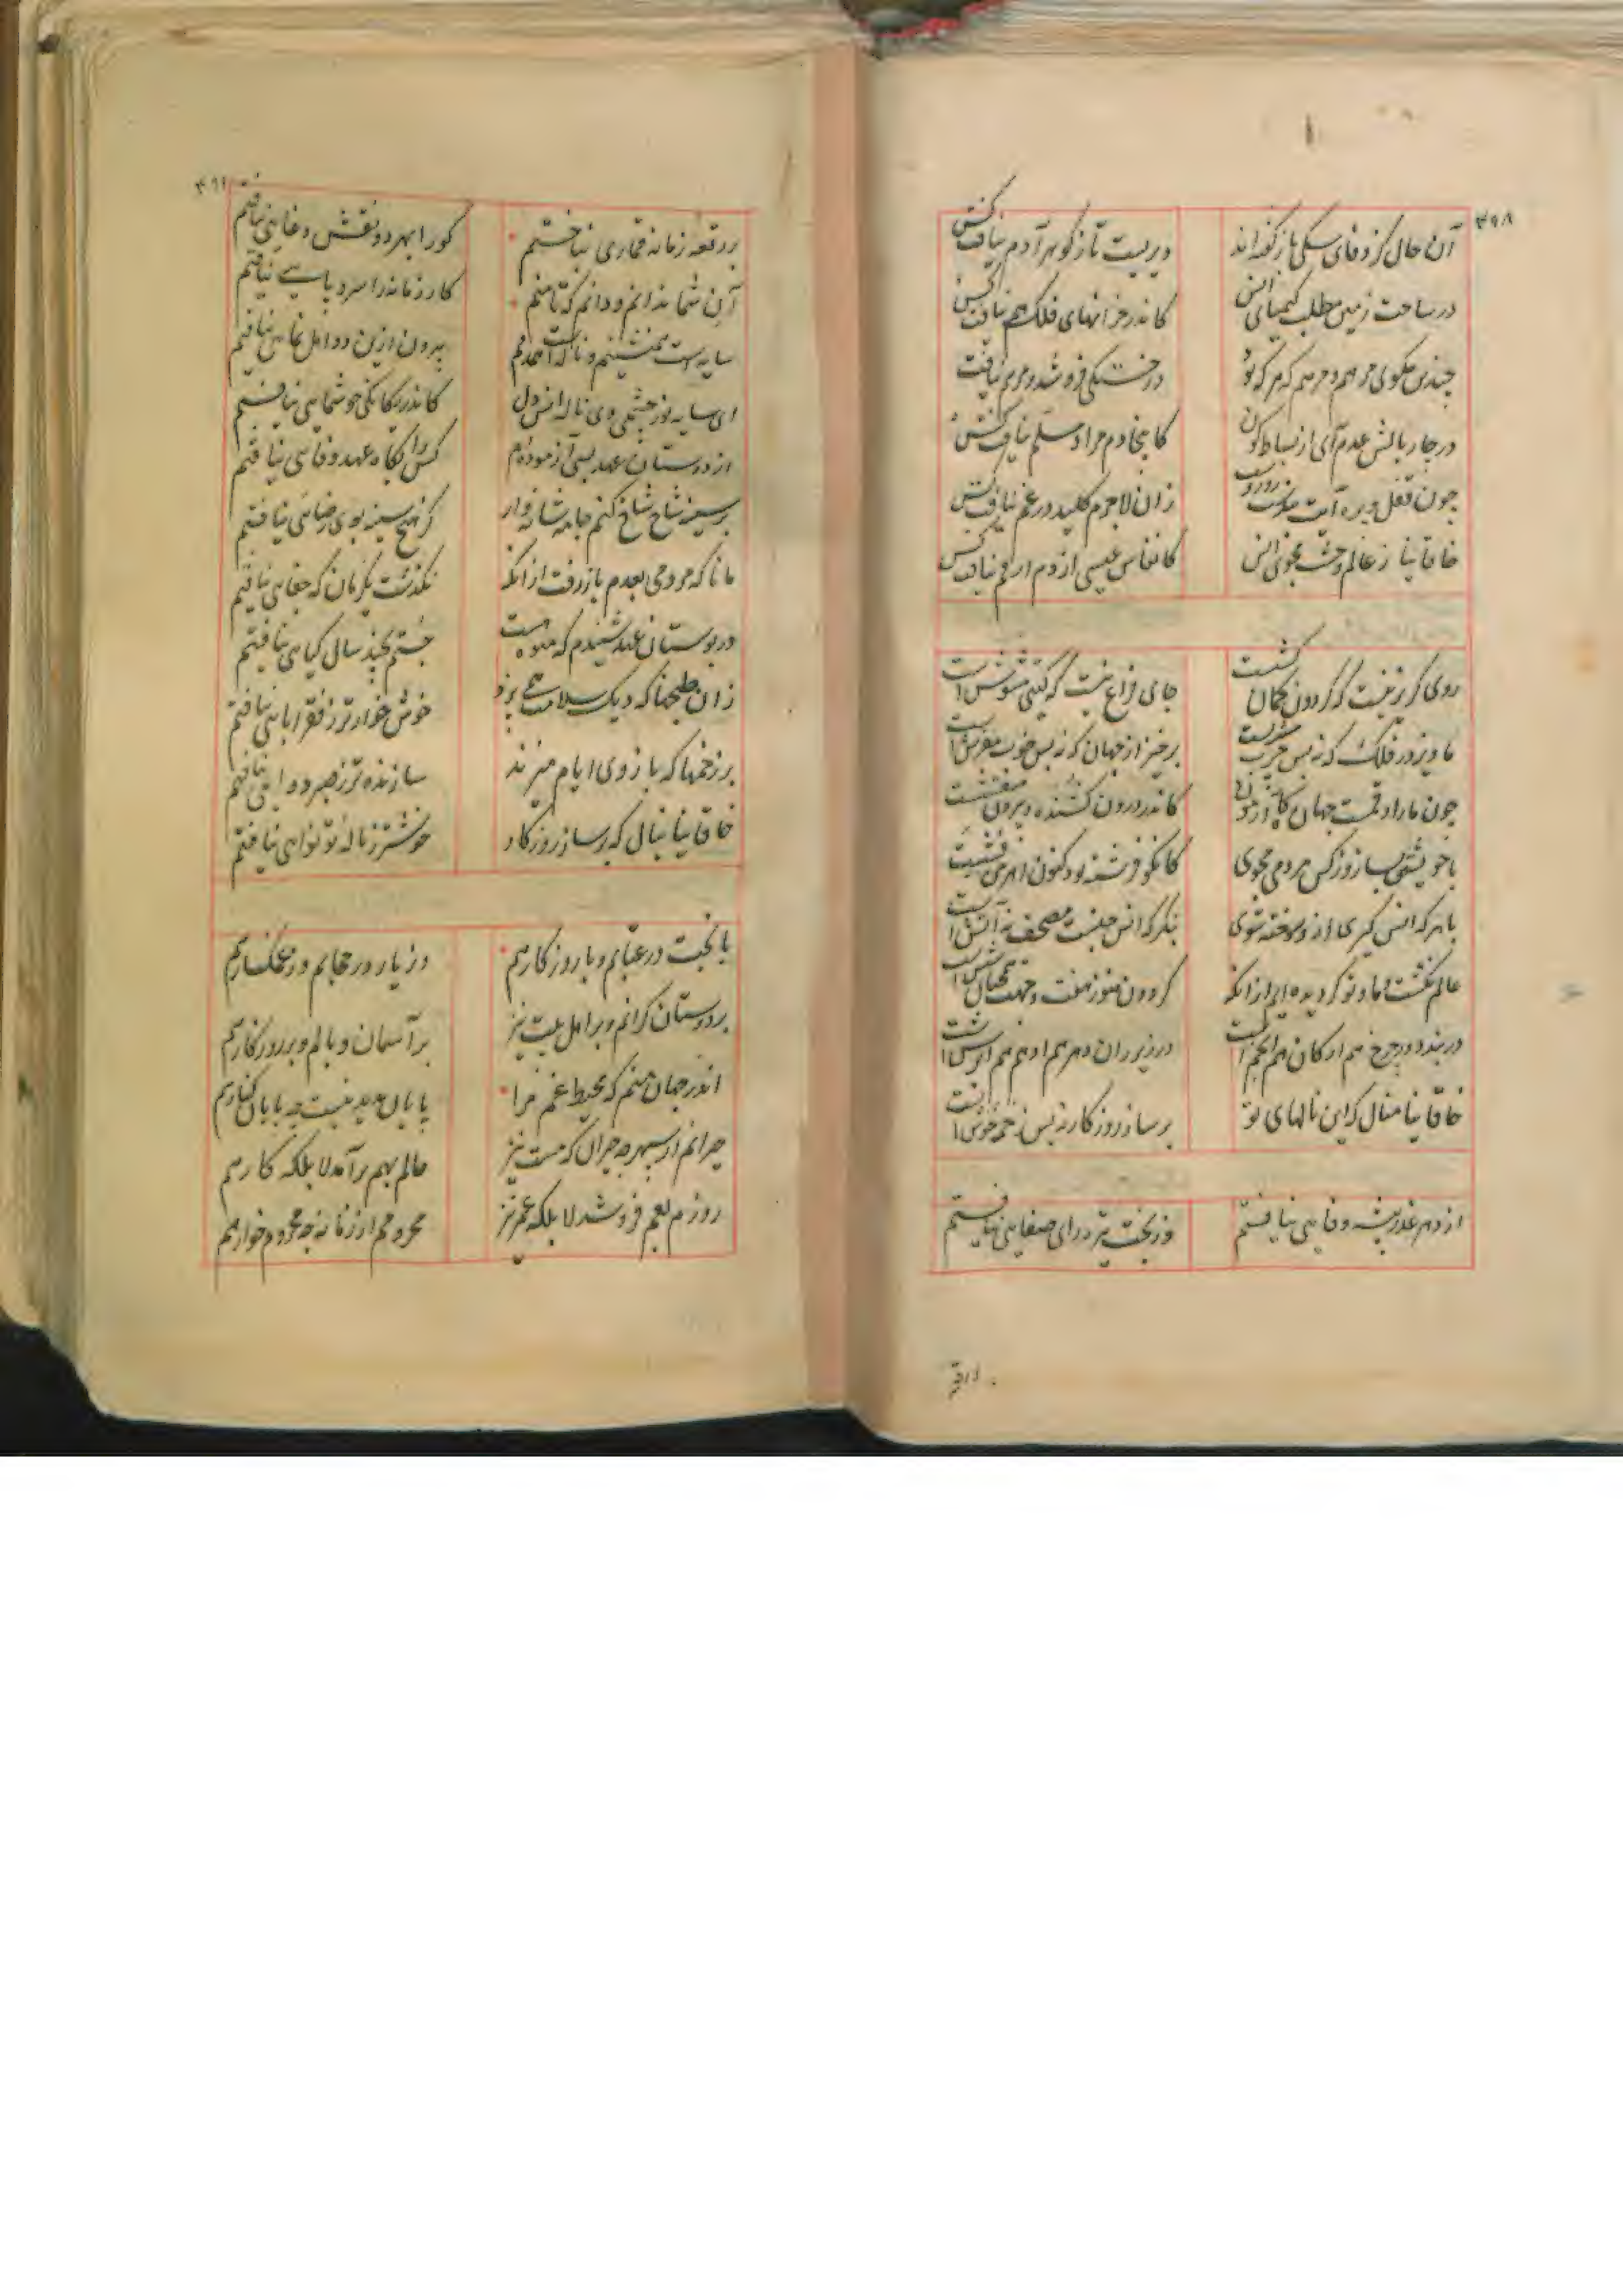 ۴۹۸
آن حال کز وفای سگی باز گفته‌اند دیریست تا ز گوهر آدم نیافت کس
در ساحت زمین مطلب کیمیای انس کاندر خزانهای فلک هم نیافت کس
چندین مگوی مرهم و مرهم که هر که بود در خستگی فرو شد و مرهم نیافت
در چار بالش عدم آی از بساط کون کانجا دم مراد مسلم نیافت کس
چون قفل و پره آیت زان لاجرم کلید در غم نیافت کس
خاقانیا ز عالم وحشت مجوی انس کانفاس عیسی از دم ارقم نیافت کس
روی گریز نیست که گردون کمان‌کش است جای فراغ نیست که گیتی مشوش است
ماویز در فلک که نه بس چرب مشربست برخیز از جهان که نه بس خوب مفرش است
چون مار ارقمست جهان گاه آزمون کاندر درون کشنده و بیرون منقشست
با خویشتن بساز و ز کس مردمی مجوی کانکو فرشته بود کنون اهرمن‌فشست
با هر که انس گیری ازو سوخته شوی بنگر که انس چیست مصحف نه آتش است
عالم نگشت و ما و تو گردیده‌ایم از آنکه گردون هنوز هفت و جهت همچنان شش است
در بند دور چرخ هم ارکان هم انجمست در زیر ران دهر هم ادهم هم ابرش است
خاقانیا منال که این نالهای تو بر ساز روزگار نه بس زخمهٔ خوش است
از دهر غدرپیشه وفایی نیافتم وز بخت تیره‌رای صفایی نیافتم
بر رقعه زمانه قماری نباختم کورا بهر دو نقش دغایی نیافتم
آن شما ندانم و دانم که تا منم کار زمانه را سر و پایی نیافتم
سایه‌ست همنشینم و ناله‌ست همدمم بیرون ازین دو اهل نمایی نیافتم
ای سایه نور چشمی وی ناله انس دل کاندر یگانگی چو شمایی نیافتم
از دوستان عهد بسی آزموده‌ام کس را بگاه عهد وفایی نیافتم
بر سینه شاخ شاخ کنم جامه شانه‌وار کز هیچ سینه بوی رضایی نیافتم
مانا که مردمی بعدم باز رفت از آنکه نگذشت یک زمان که جفایی نیافتم
در بوستان عهد شنیدم که میوه هست جستم بچند سال گیاهی نیافتم
زان طبخها که دیگ سلامت همی پزد خوش‌خوارتر ز فقر ابایی نیافتم
بر زخمها که بازوی ایام میزند سازنده‌تر ز صبر دوایی نیافتم
خاقانیا بنال که بر ساز روزگار خوشتر ز ناله تو نوایی نیافتم
با بخت در عتابم و با روزگار هم وز یار در حجابم و از غمگسار هم
بر دوستان گرانم و بر اهل بیت نیز بر آسمان وبالم و بر روزگار هم
اندر جهان منم که محیط غم مرا پایان پدید نیست چه پایان کنار هم
حیرانم از سپهر چه حیران که مست نیز عالم بهم برآمد لا بلکه کار هم
روزم بغم فرو شد لا بلکه عمر نیز محرومم از زمانه چه محروم خوار هم